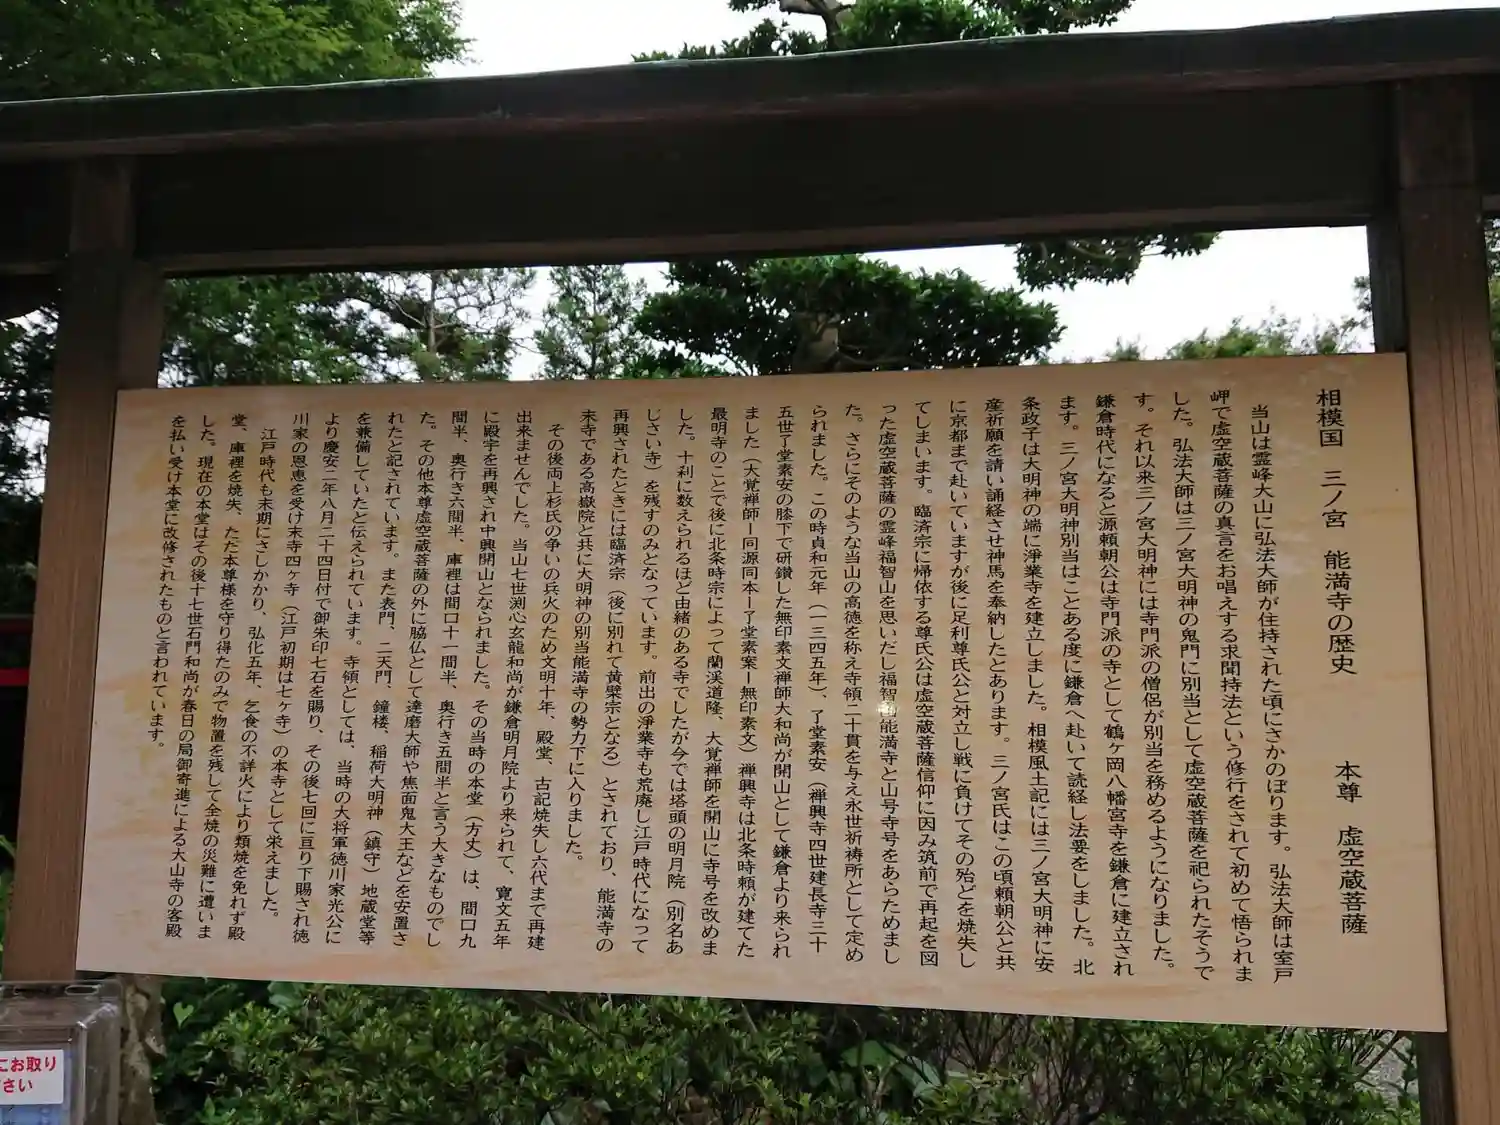 相模国　三ノ宮　能満寺の歴史　　　本尊　虚空蔵菩薩
　当山は霊峰大山に弘法大師が住持された頃にさかのぼります。弘法大師は室戸
岬で虚空蔵菩薩の真言をお唱えする求聞持法という修行をされて初めて悟られま
した。弘法大師は三ノ宮大明神の鬼門に別当として虚空蔵菩薩を祀られたそうで
す。それ以来三ノ宮大明神には寺門派の僧侶が別当を務めるようになりました。
鎌倉時代になると源頼朝公は寺門派の寺として鶴ヶ岡八幡宮寺を鎌倉に建立され
ます。三ノ宮大明神別当はことある度に鎌倉へ赴いて読経し法要をしました。北
条政子は大明神の端に浄業寺を建立しました。相模風土記には三ノ宮大明神に安
産祈願を請い誦経させ神馬を奉納したとあります。三ノ宮氏はこの頃頼朝公と共
に京都まで赴いていますが後に足利尊氏公と対立し戦に負けてその殆どを焼失し
てしまいます。臨済宗に帰依する尊氏公は虚空蔵菩薩信仰に因み筑前で再起を図
った虚空蔵菩薩の霊峰福智山を思いだし福智山能満寺と山号寺号をあらためまし
た。さらにそのような当山の高徳を称え寺領二十貫を与え永世祈祷所として定め
られました。この時貞和元年（一三四五年）、了堂素安（禅興寺四世建長寺三十
五世了堂素安の膝下で研鑽した無印素文禅師大和尚が開山として鎌倉より来られ
ました（大覚禅師ー同源同本ー了堂素案ー無印素文）禅興寺は北条時頼が建てた
最明寺のことで後に北条時宗によって蘭渓道隆、大覚禅師を開山に寺号を改めま
した。十利に数えられるほど由緒のある寺でしたが今では塔頭の明月院（別名あ
じさい寺）を残すのみとなっています。前出の浄業寺も荒廃し江戸時代になって
再興されたときには臨済宗（後に別れて黄檗宗となる）とされており、能満寺の
末寺である高嶽院と共に大明神の別当能満寺の勢力下に入りました。
　その後両上杉氏の争いの兵火のため文明十年、殿堂、古記焼失し六代まで再建
出来ませんでした。当山七世渕心玄龍和尚が鎌倉明月院より来られて、寛文五年
に殿宇を再興され中興開山となられました。その当時の本堂（方丈）は、間口九
間半、奥行き六間半、庫裡は間口十一間半、奥行き五間半と言う大きなものでし
た。その他本尊虚空蔵菩薩の外に脇仏として達磨大師や焦面鬼大王などを安置さ
れたと記されています。また表門、二天門、鐘楼、稲荷大明神（鎮守）地蔵堂等
を兼備していたと伝えられています。寺領としては、当時の大将軍徳川家光公に
より慶安二年八月二十四日付で御朱印七石を賜り、その後七回に亘り下賜され徳
川家の恩恵を受け末寺四ヶ寺（江戸初期は七ヶ寺）の本寺として栄えました。
　江戸時代も末期にさしかかり、弘化五年、乞食の不詳火により類焼を免れず殿
堂、庫裡を焼失、ただ本尊様を守り得たのみで物置を残して全焼の災難に遭いま
した。現在の本堂はその後十七世石門和尚が春日の局御寄進による大山寺の客殿
を払い受け本堂に改修されたものと言われています。
にお取り
さい